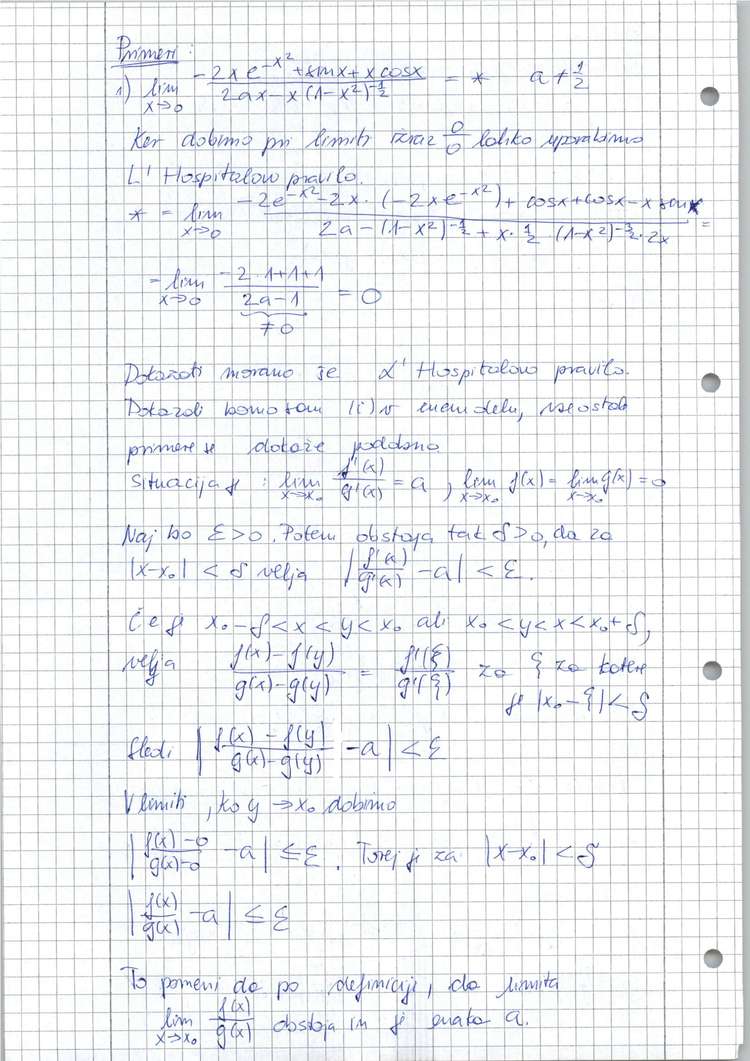 Primeri:
1) lim x→0 (-2xe^{-x²}+sinx+xcosx)/(2ax-x(1-x²)^{-1/2}) = *    a≠1/2
Ker dobimo pri limiti izraz 0/0 lahko uporabimo
L'Hospitalovo pravilo.
* = lim x→0 (-2e^{-x²}-2x·(-2xe^{-x²})+cosx+cosx-x sinx)/(2a-(1-x²)^{-1/2}+x·1/2·(1-x²)^{-3/2}·2x) =
= lim x→0 (-2·1+1+1)/(2a-1) = 0
≠0
Dokazati moramo še L'Hospitalovo pravilo.
Dokazali bomo samo (i) v enem delu, vse ostale
primere se dokaže podobno.
Situacija je: lim x→x₀ f'(x)/g'(x) = a, lim x→x₀ f(x) = lim x→x₀ g(x) = 0
Naj bo ε>0. Potem obstaja tak δ>0, da za
|x-x₀| < δ velja |f'(x)/g'(x) - a| < ε.
Če je x₀-δ<x<y<x₀ ali x₀<y<x<x₀+δ,
velja (f(x)-f(y))/(g(x)-g(y)) = f'(ξ)/g'(ξ) za ξ za katere
je |x₀-ξ|<δ
Sledi |(f(x)-f(y))/(g(x)-g(y)) - a| < ε
V limiti, ko y→x₀ dobimo
|(f(x)-0)/(g(x)-0) - a| ≤ ε. Torej je za |x-x₀| < δ
|f(x)/g(x) - a| ≤ ε
To pomeni da po definiciji, da limita
lim x→x₀ f(x)/g(x) obstaja in je enaka a.